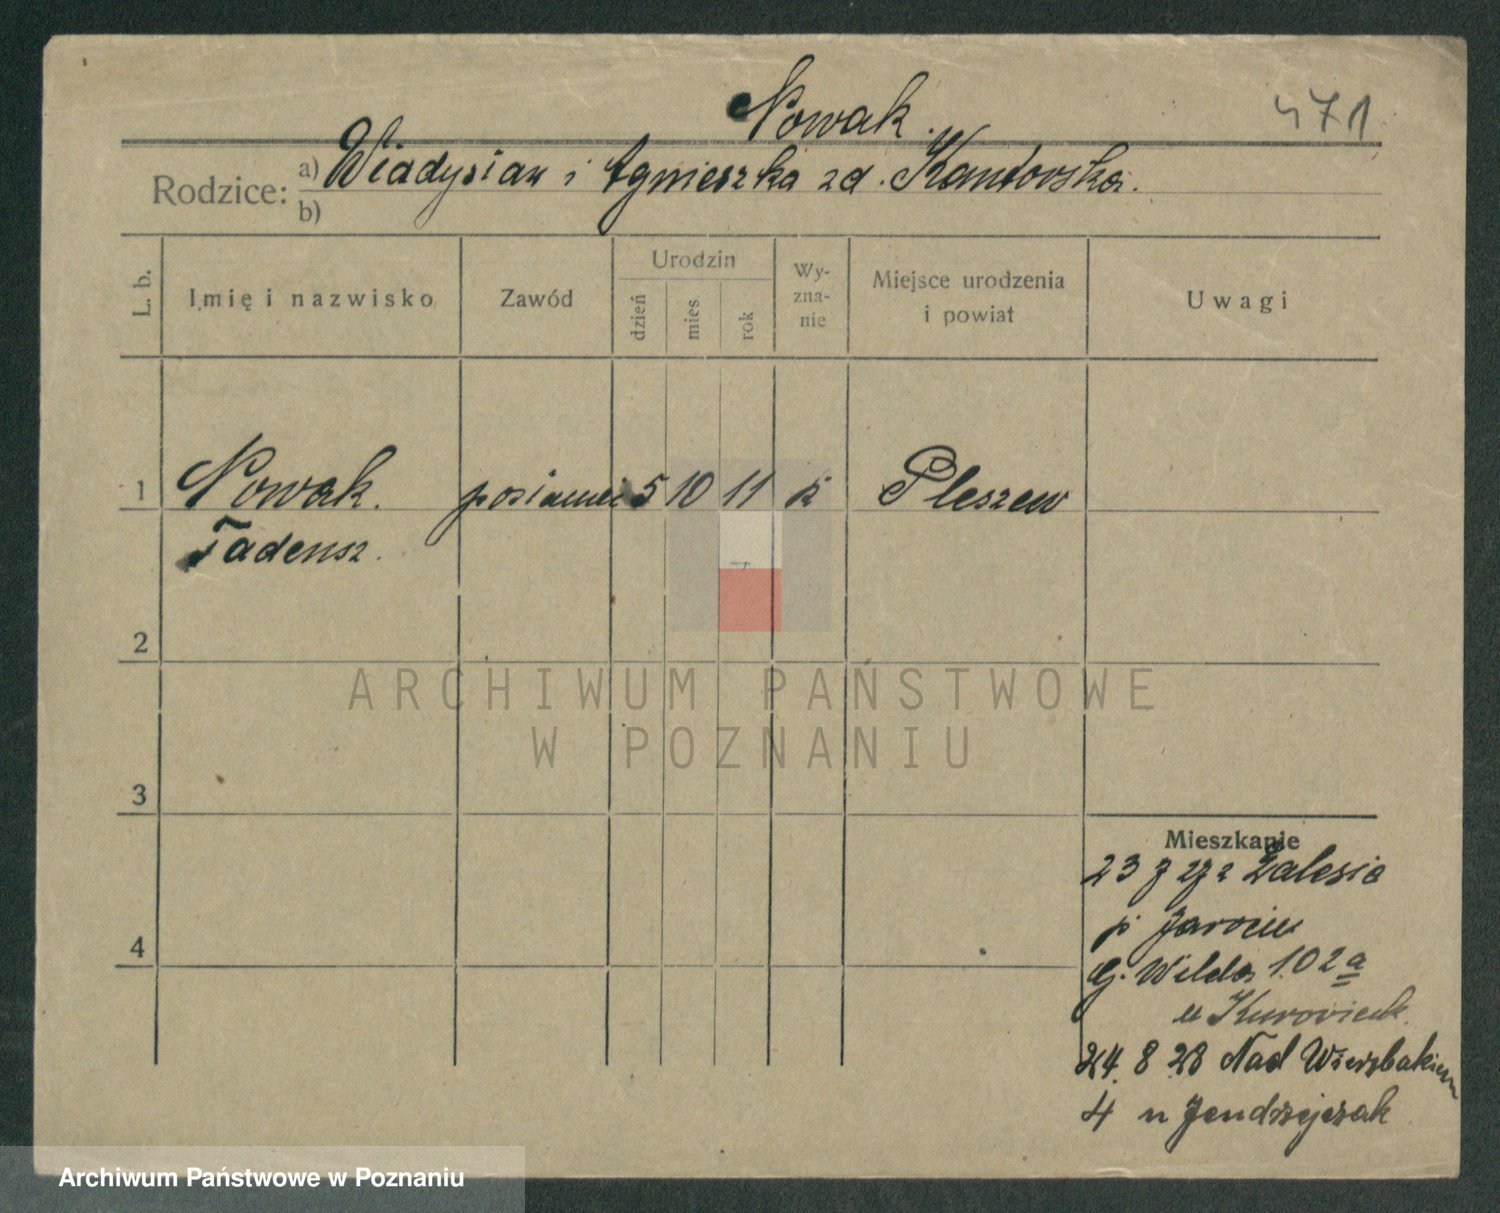 Nowak.
471
Rodzice:
a) Władysław i Agnieszka zd. Kantorska.
b)
L. b.
Imię i nazwisko
Zawód
Urodzin
dzień
mies
rok
Wy-
zna-
nie
Miejsce urodzenia
i powiat
Uwagi
1 Nowak. 5 10 11 k Pleszew
Tadeusz.
2
ARCHIWUM PAŃSTWOWE
W POZNANIU
3
Mieszkanie
23 Zalesie
p Jarocin
G. Wilda 102a
u
4
24. 8 28 Nad Wierzbakiem
4 u Jendrzejczak
Archiwum Państwowe w Poznaniu